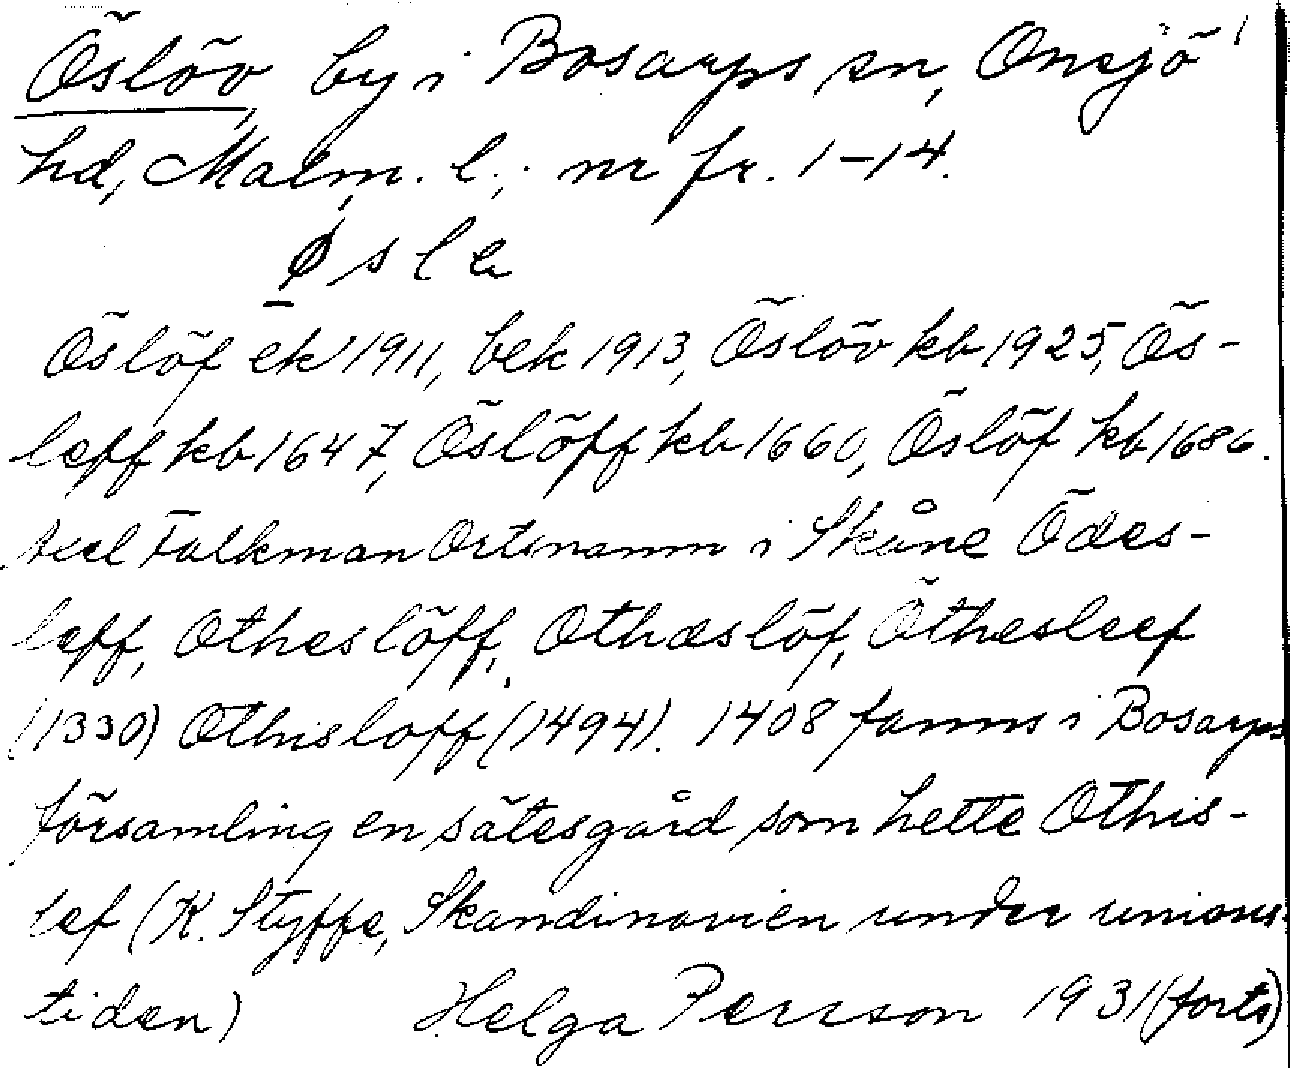 Öslöv, by i Bosarps sn, Onsjö
hd, Malm. l.; nr fr. 1-14.
Øsle
Öslöf ek 1911, bek 1913, Öslöv kb 1925, Ös-
leff kb 1647, Öslöff kb 1660, Öslöf kb 1686.
Axel Falkman Ortsnamn i Skåne Ödes-
leff, Otheslöff, Othæslöf, Öthesleef
(1330) Othisloff (1494). 1408 fanns i Bosarps
församling en sätesgård som hette Othis-
lef (K. Styffe, Skandinavien under unions-
tiden) Helga Persson 1931 (forts)